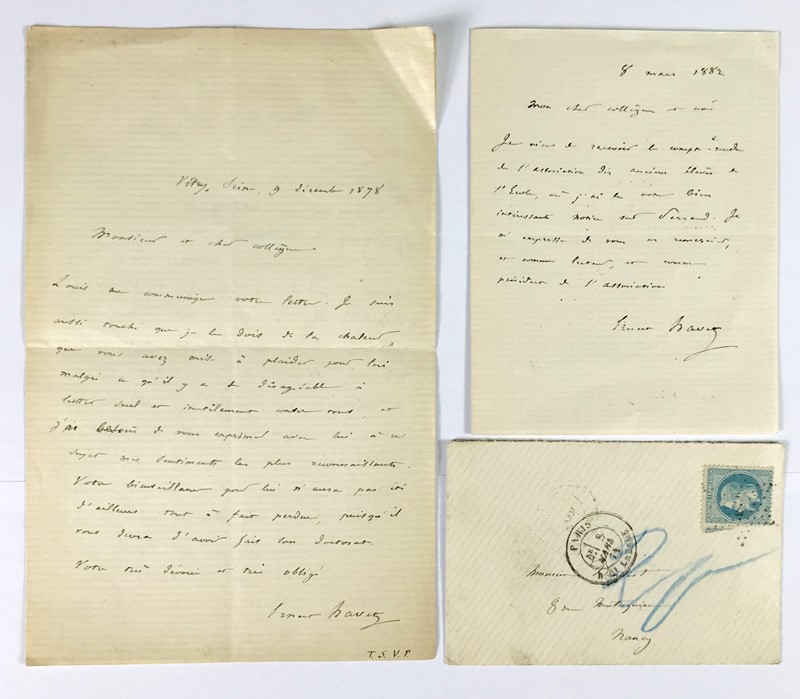 Vitry, Seine, 9 décembre 1878
Monsieur et cher collègue
Louis me communique votre lettre. Je suis
aussi touché que je le dois de la chaleur,
que vous avez mise à plaider pour lui,
malgré ce qu'il y a de désagréable à
lutter seul et inutilement contre tous, et
j'ai besoin de vous exprimer avec lui à ce
sujet mes sentiments les plus reconnaissants.
Votre bienveillance pour lui n'aura pas été
d'ailleurs tout à fait perdue, puisqu'il
vous devra d'avoir fait son doctorat.
Votre très dévoué et très obligé
Ernest Havet
T.S.V.P.
8 mars 1882
Mon cher collègue et ami
Je viens de recevoir le compte-rendu
de l'association des anciens élèves de
l'Ecole, où j'ai lu votre bien
intéressante notice sur Gerrand. Je
m'empresse de vous en remercier,
et comme lecteur, et comme
président de l'association
Ernest Havet
PARIS
8
MARS
Monsieur
8 rue Montesquieu
Nancy